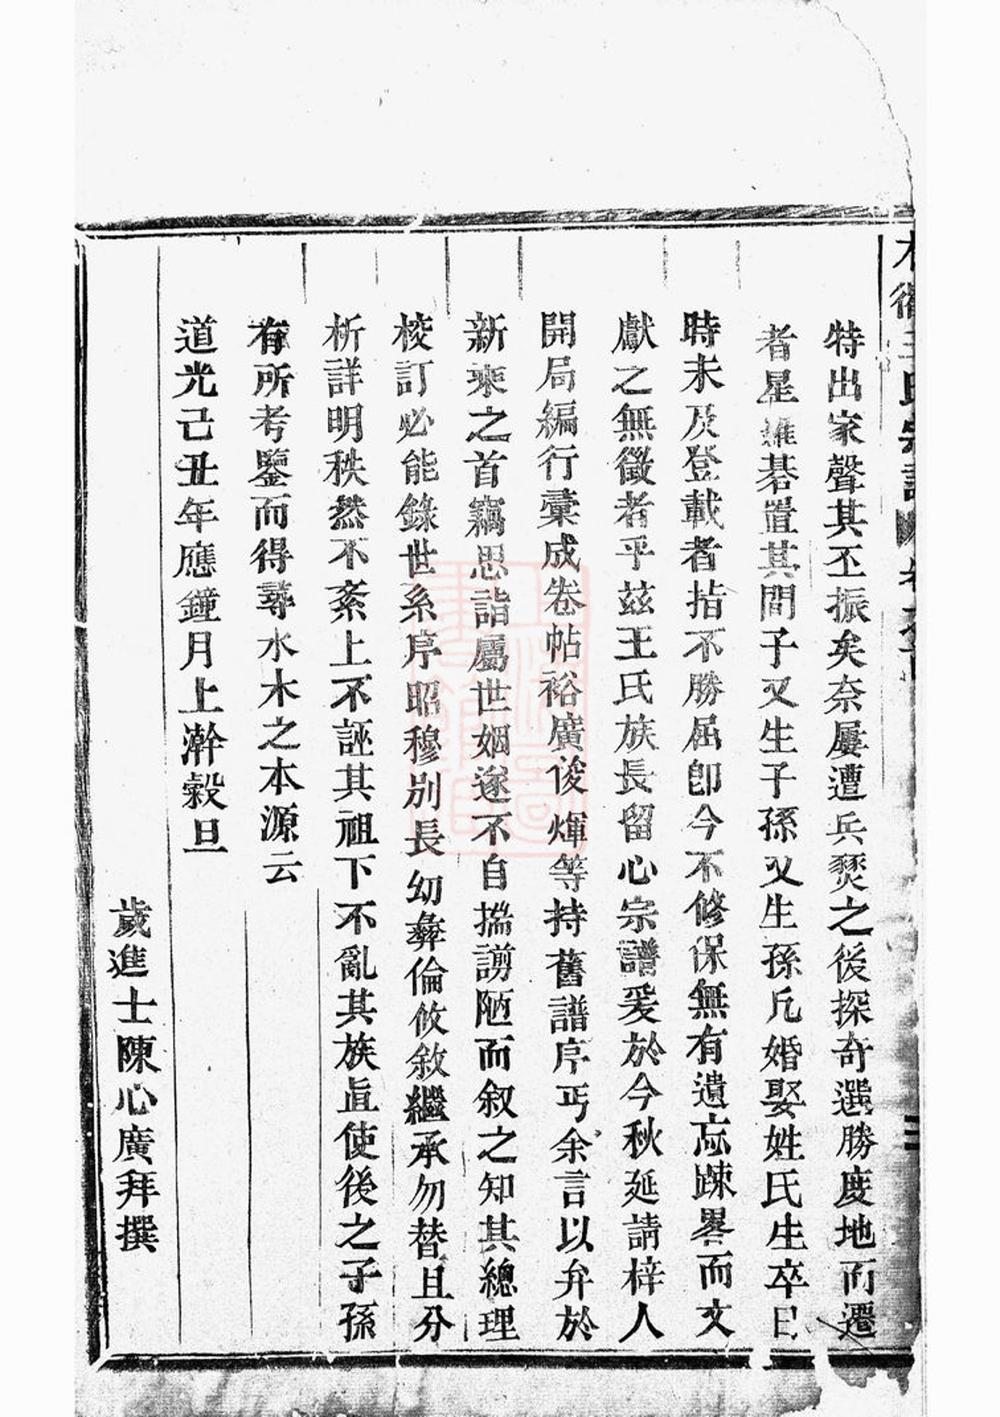 王氏宗譜
特出家聲其丕振矣奈屢遭兵燹之後探奇選勝度地而遷
者星羅碁置其間子又生子孫又生孫凡婚娶姓氏生卒日
時未及登載者指不勝屈卽今不修保無有遺忘踈畧而文
獻之無徵者乎兹王氏族長留心宗譜爰於今秋延請梓人
開局編行彙成卷帖裕廣俊煇等持舊譜序丐余言以弁於
新乘之首竊思詣屬世姻遂不自揣謭陋而叙之知其總理
校訂必能錄世系序昭穆別長幼彝倫攸敘繼承勿替且分
析詳明秩然不紊上不誣其祖下不亂其族眞使後之子孫
有所考鑒而得尋水木之本源云
道光己丑年應鐘月上澣穀旦
歲進士陳心廣拜撰